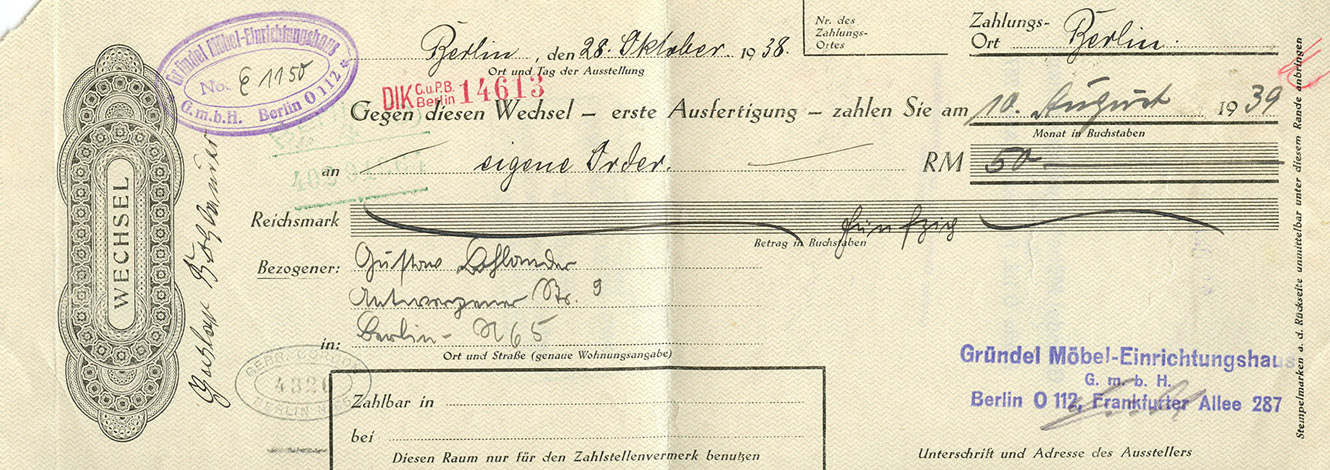 Gründel Möbel-Einrichtungshaus
No. E 1150
G.m.b.H. Berlin O 112
Berlin, den 28. Oktober 1938.
Ort und Tag der Ausstellung
Nr. des
Zahlungs-
Ortes
Zahlungs-
Ort Berlin.
DIK C.u.P.B. Berlin 14613
Gegen diesen Wechsel – erste Ausfertigung – zahlen Sie am 10. August 1939
Monat in Buchstaben
an eigene Order. RM 50.-
402
Reichsmark fünfzig
Betrag in Buchstaben
Bezogener: Gustav
Antwerpener Str. 9
in: Berlin - N 65
Ort und Straße (genaue Wohnungsangabe)
Zahlbar in
bei
Diesen Raum nur für den Zahlstellenvermerk benutzen
WECHSEL
Gustav
4320
BERLIN N 65
Gründel Möbel-Einrichtungshaus
G. m. b. H.
Berlin O 112, Frankfurter Allee 287
Unterschrift und Adresse des Ausstellers
Stempelmarken a. d. Rückseite unmittelbar unter diesem Rande anbringen